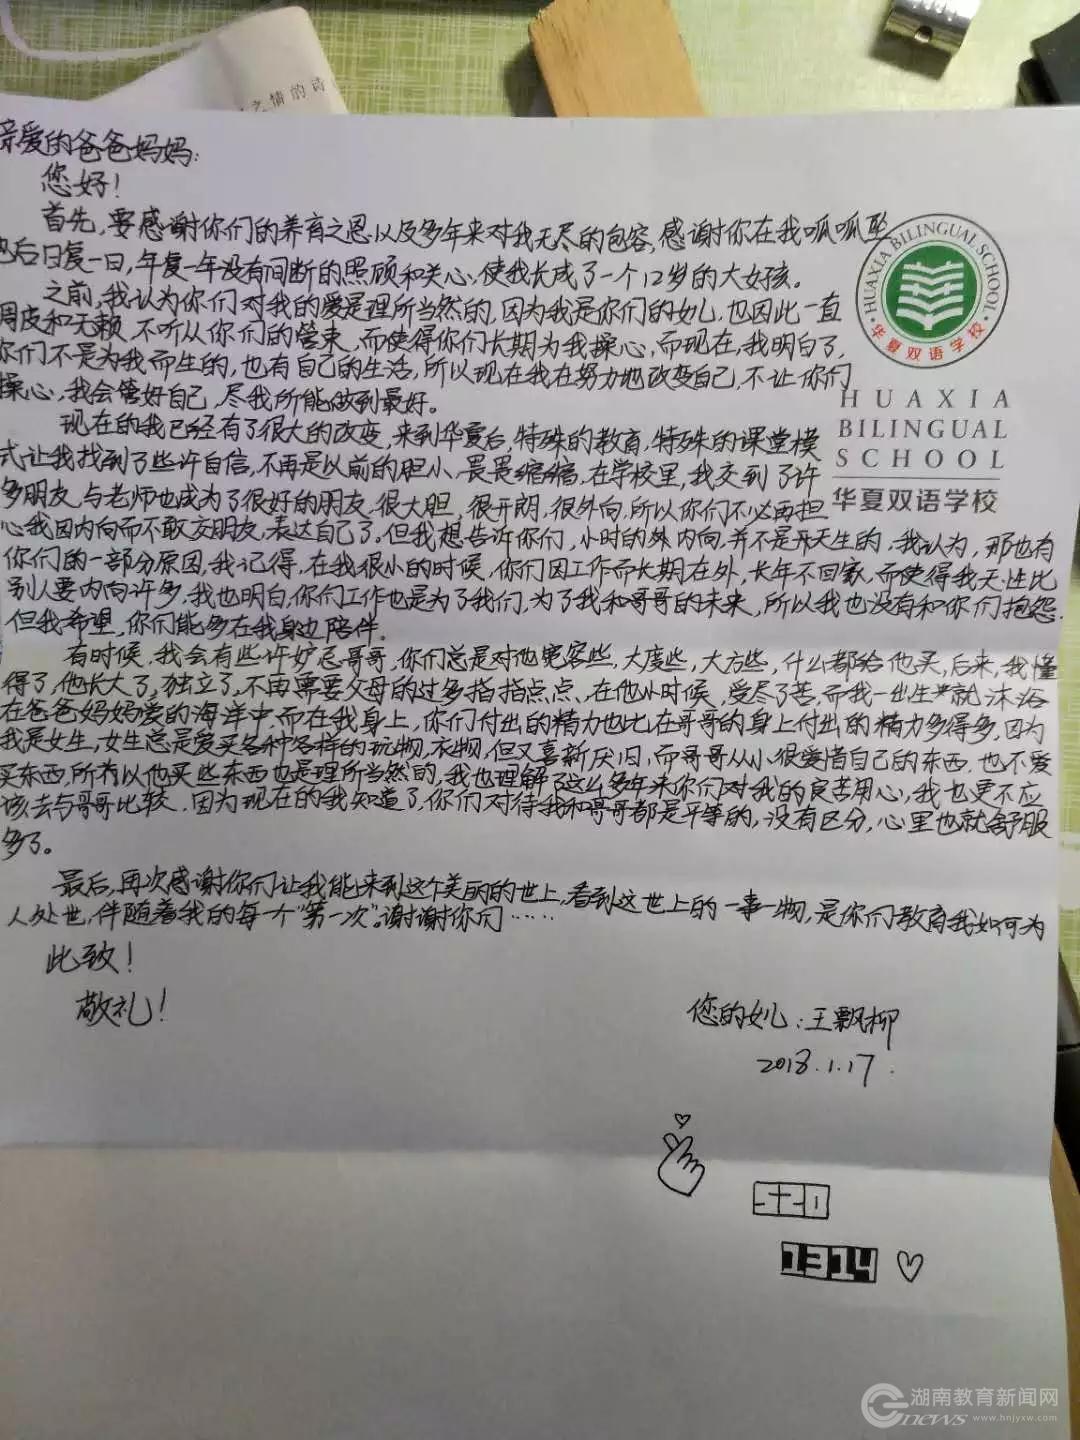 之情的诗
亲爱的爸爸妈妈:
您好!
首先,要感谢你们的养育之恩以及多年来对我无尽的包容,感谢你在我呱呱坠
地后日复一日,年复一年没有间断的照顾和关心,使我长成了一个12岁的大女孩。
之前,我认为你们对我的爱是理所当然的,因为我是你们的女儿,也因此一直
调皮和无赖,不听从你们的管束,而使得你们长期为我操心,而现在,我明白了,
你们不是为我而生的,也有自己的生活,所以现在我在努力地改变自己,不让你们
操心,我会管好自己,尽我所能做到最好。
现在的我已经有了很大的改变,来到华夏后,特殊的教育,特殊的课堂模
式让我找到了些许自信,不再是以前的胆小、畏畏缩缩,在学校里,我交到了许
多朋友,与老师也成为了很好的朋友,很大胆,很开朗,很外向,所以你们不必再担
心我因内向而不敢交朋友,表达自己了,但我想告诉你们,小时的内向,并不是天生的,我认为,那也有
你们的一部分原因,我记得,在我很小的时候,你们因工作而长期在外,长年不回家,而使得我天性比
别人要内向许多,我也明白,你们工作也是为了我们,为了我和哥哥的未来,所以我也没有和你们抱怨.
但我希望,你们能多在我身边陪伴.
有时候,我会有些许妒忌哥哥,你们总是对他宽容些,大度些,大方些,什么都给他买,后来,我懂
得了,他长大了,独立了,不再需要父母的过多指指点点、在他小时候,受尽了苦,而我一出生就沐浴
在爸爸妈妈爱的海洋中,而在我身上,你们付出的精力也比在哥哥的身上付出的精力多得多,因为
我是女生,女生总是爱买各种各样的玩物,衣物,但又喜新厌旧,而哥哥从小很爱惜自己的东西,也不爱
买东西,所有以他买些东西也是理所当然的,我也理解了这么多年来你们对我的良苦用心,我也更不应
该去与哥哥比较.因为现在的我知道了,你们对待我和哥哥都是平等的,没有区分,心里也就舒服
多了。
最后,再次感谢你们让我能来到这个美丽的世上,看到这世上的一事一物,是你们教育我如何为
人处世,伴随着我的每个“第一次”。谢谢你们……
此致!
敬礼!
您的女儿:王飘柳
2018.1.17.
520
1314
HUAXIA BILINGUAL SCHOOL
华夏双语学校
HUAXIA
BILINGUAL
SCHOOL
华夏双语学校
湖南教育新闻网
news www.hnjyxw.com